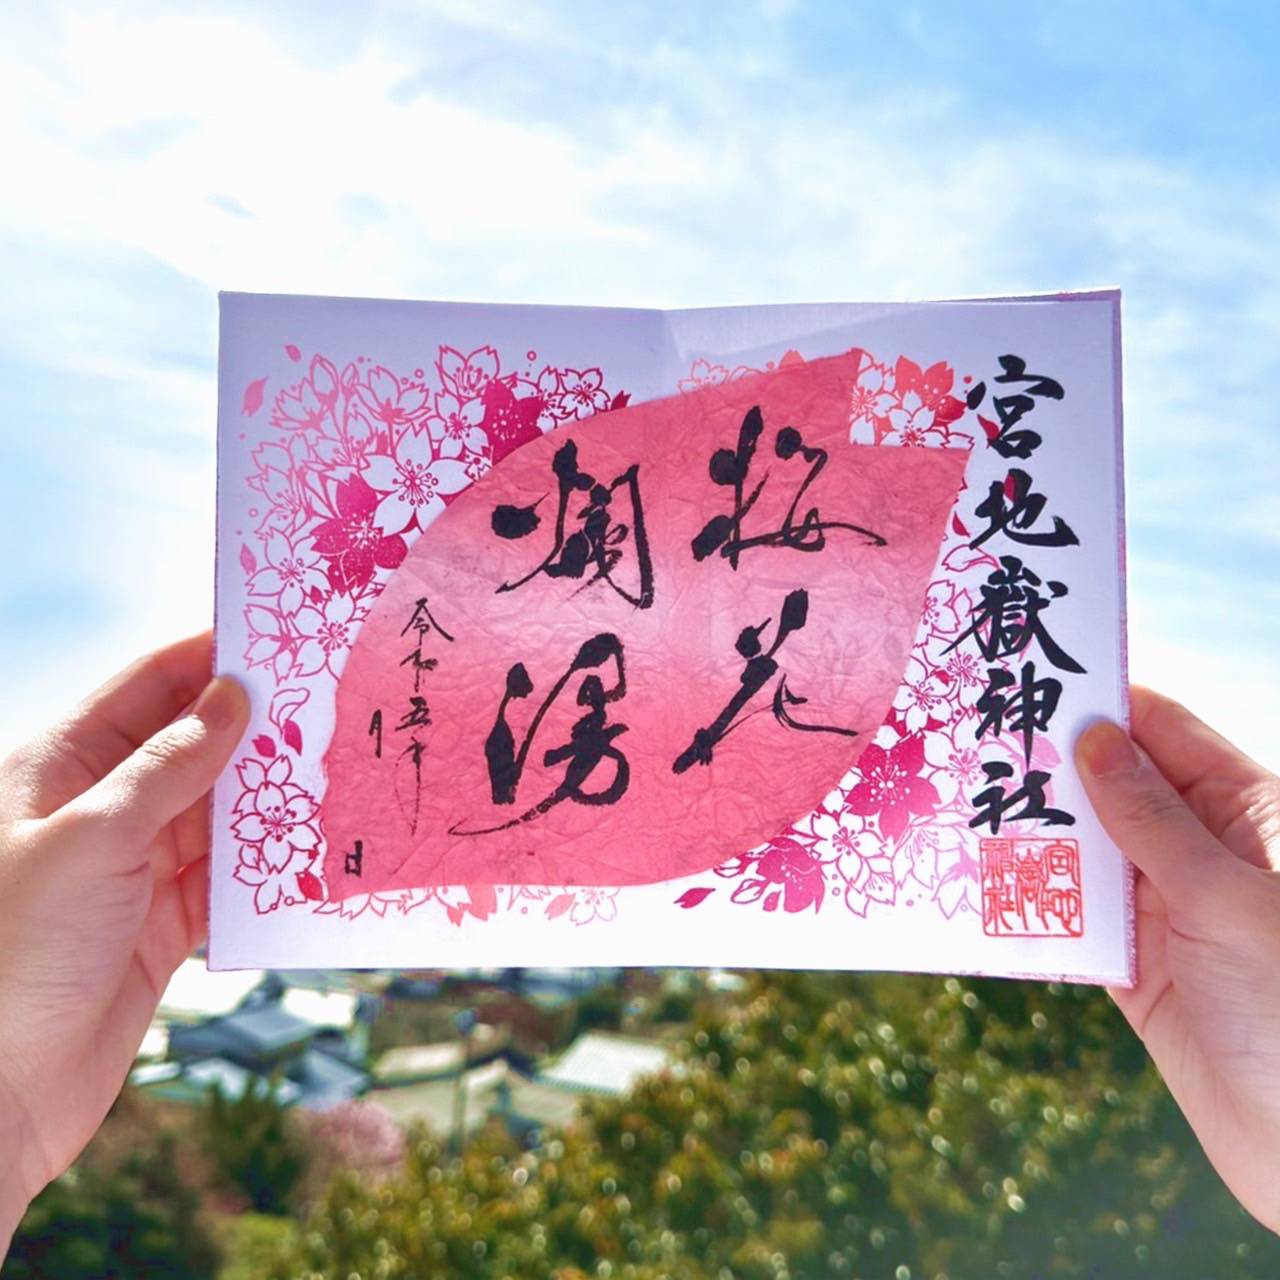 宮地嶽神社
櫻花
爛漫
令和五年
月
日
宮地嶽神社